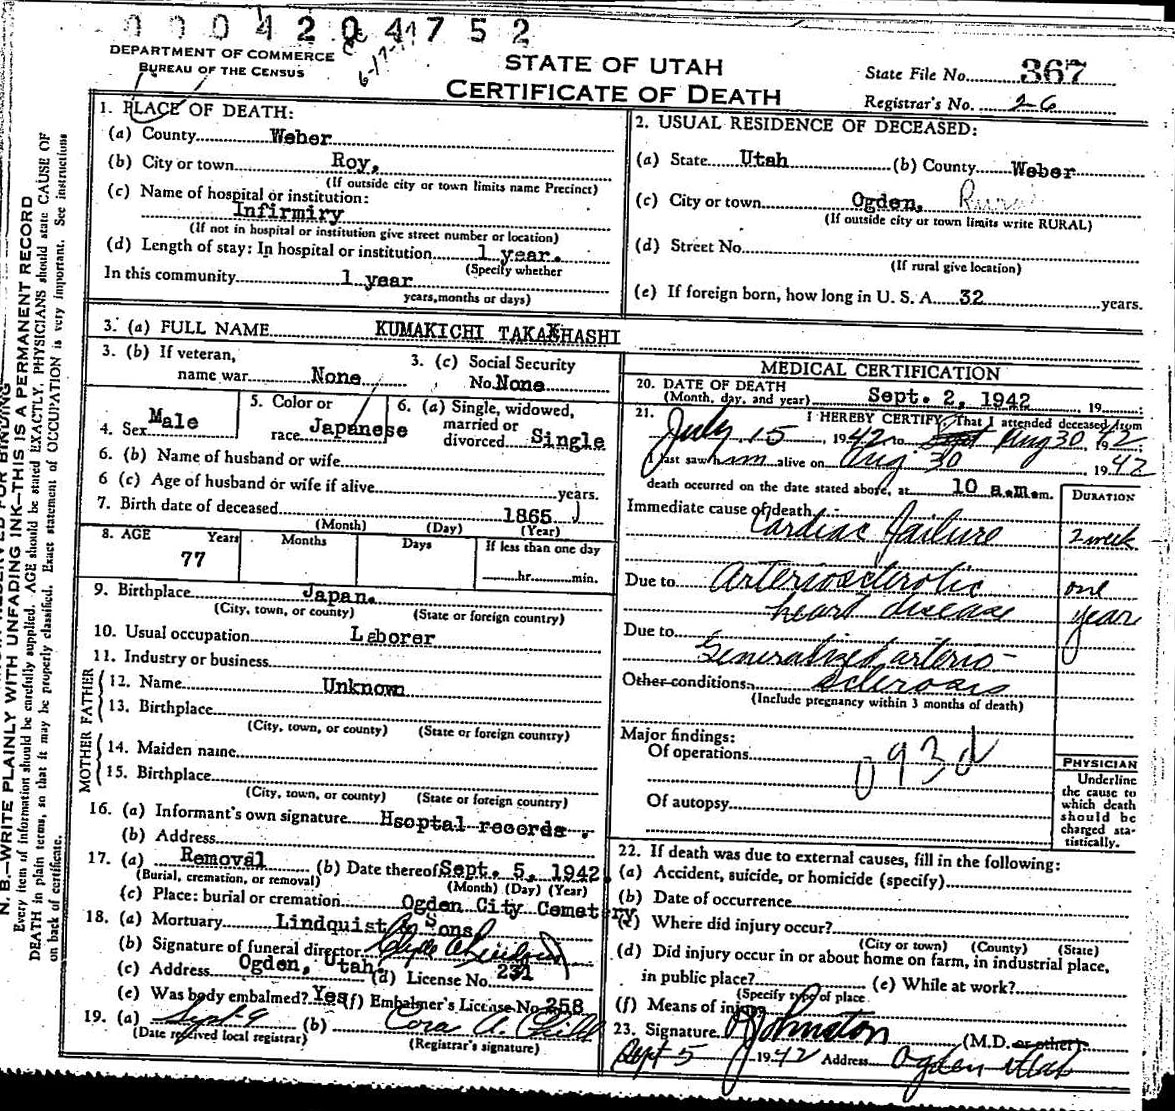 0 0 0 4 2 0 4 7 5 2
DEPARTMENT OF COMMERCE
BUREAU OF THE CENSUS
STATE OF UTAH
CERTIFICATE OF DEATH
State File No. 367
Registrar's No. 26
1. PLACE OF DEATH:
(a) County Weber
(b) City or town Roy,
(If outside city or town limits name Precinct)
(c) Name of hospital or institution:
Infirmiry
(If not in hospital or institution give street number or location)
(d) Length of stay: In hospital or institution 1 year.
(Specify whether
In this community 1 year
years, months or days)
2. USUAL RESIDENCE OF DECEASED:
(a) State Utah (b) County Weber
(c) City or town Ogden, Rural
(If outside city or town limits write RURAL)
(d) Street No.
(If rural give location)
(e) If foreign born, how long in U. S. A. 32 years.
3. (a) FULL NAME KUMAKICHI TAKAHASHI
3. (b) If veteran,
name war None
3. (c) Social Security
No. None
4. Sex Male
5. Color or
race Japanese
6. (a) Single, widowed,
married or
divorced Single
6. (b) Name of husband or wife
6 (c) Age of husband or wife if alive years.
7. Birth date of deceased 1865
(Month) (Day) (Year)
8. AGE Years Months Days If less than one day
77 hr. min.
9. Birthplace Japan.
(City, town, or county) (State or foreign country)
10. Usual occupation Laborer
11. Industry or business
FATHER
12. Name Unknown
13. Birthplace
(City, town, or county) (State or foreign country)
MOTHER
14. Maiden name
15. Birthplace
(City, town, or county) (State or foreign country)
16. (a) Informant's own signature Hsoptal records.
(b) Address
17. (a) Removal (b) Date thereof Sept. 5, 1942
(Burial, cremation, or removal) (Month) (Day) (Year)
(c) Place: burial or cremation Ogden City Cemetery
18. (a) Mortuary Lindquist & Sons
(b) Signature of funeral director
(c) Address Ogden, Utah. (d) License No. 231
(e) Was body embalmed? Yes (f) Embalmer's License No. 258
19. (a) Sept 9 (b) Cora A.
(Date received local registrar) (Registrar's signature)
MEDICAL CERTIFICATION
20. DATE OF DEATH
(Month, day, and year) Sept. 2, 1942, 19
21. I HEREBY CERTIFY, That I attended deceased from
July 15, 1942 to Aug 30 42
I last saw him alive on Aug 30 1942
death occurred on the date stated above, at 10 a.m. m.
DURATION
Immediate cause of death
Cardiac Failure 2 week
Due to Arteriosclerotic one
heart disease year
Due to
Generalized arterio-
Other conditions sclerosis
(Include pregnancy within 3 months of death)
Major findings:
Of operations 093d
Of autopsy
PHYSICIAN
Underline
the cause to
which death
should be
charged sta-
tistically.
22. If death was due to external causes, fill in the following:
(a) Accident, suicide, or homicide (specify)
(b) Date of occurrence
(c) Where did injury occur?
(City or town) (County) (State)
(d) Did injury occur in or about home on farm, in industrial place,
in public place? (e) While at work?
(Specify type of place
(f) Means of injury
23. Signature Johnston (M.D. or other)
Sept 5 1942 Address Ogden Utah
N. B.—WRITE PLAINLY WITH UNFADING INK—THIS IS A PERMANENT RECORD
Every item of information should be carefully supplied. AGE should be stated EXACTLY. PHYSICIANS should state CAUSE OF
DEATH in plain terms, so that it may be properly classified. Exact statement of OCCUPATION is very important. See instructions
on back of certificate.